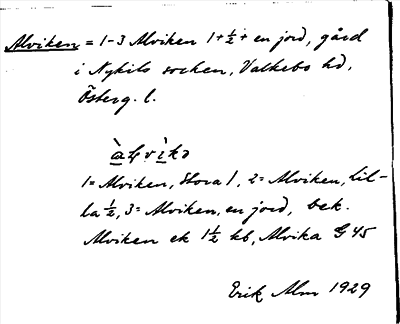 Alviken = 1-3 Alviken 1 + ½ + en jord, gård
i Nykils socken, Valkebo hd,
Österg. l.
1 = Alviken, Stora 1, 2 = Alviken, Lil-
la ½, 3 = Alviken, en jord, bek.
Alviken ek 1½ kb, Alvika G 45
Erik Alm 1929